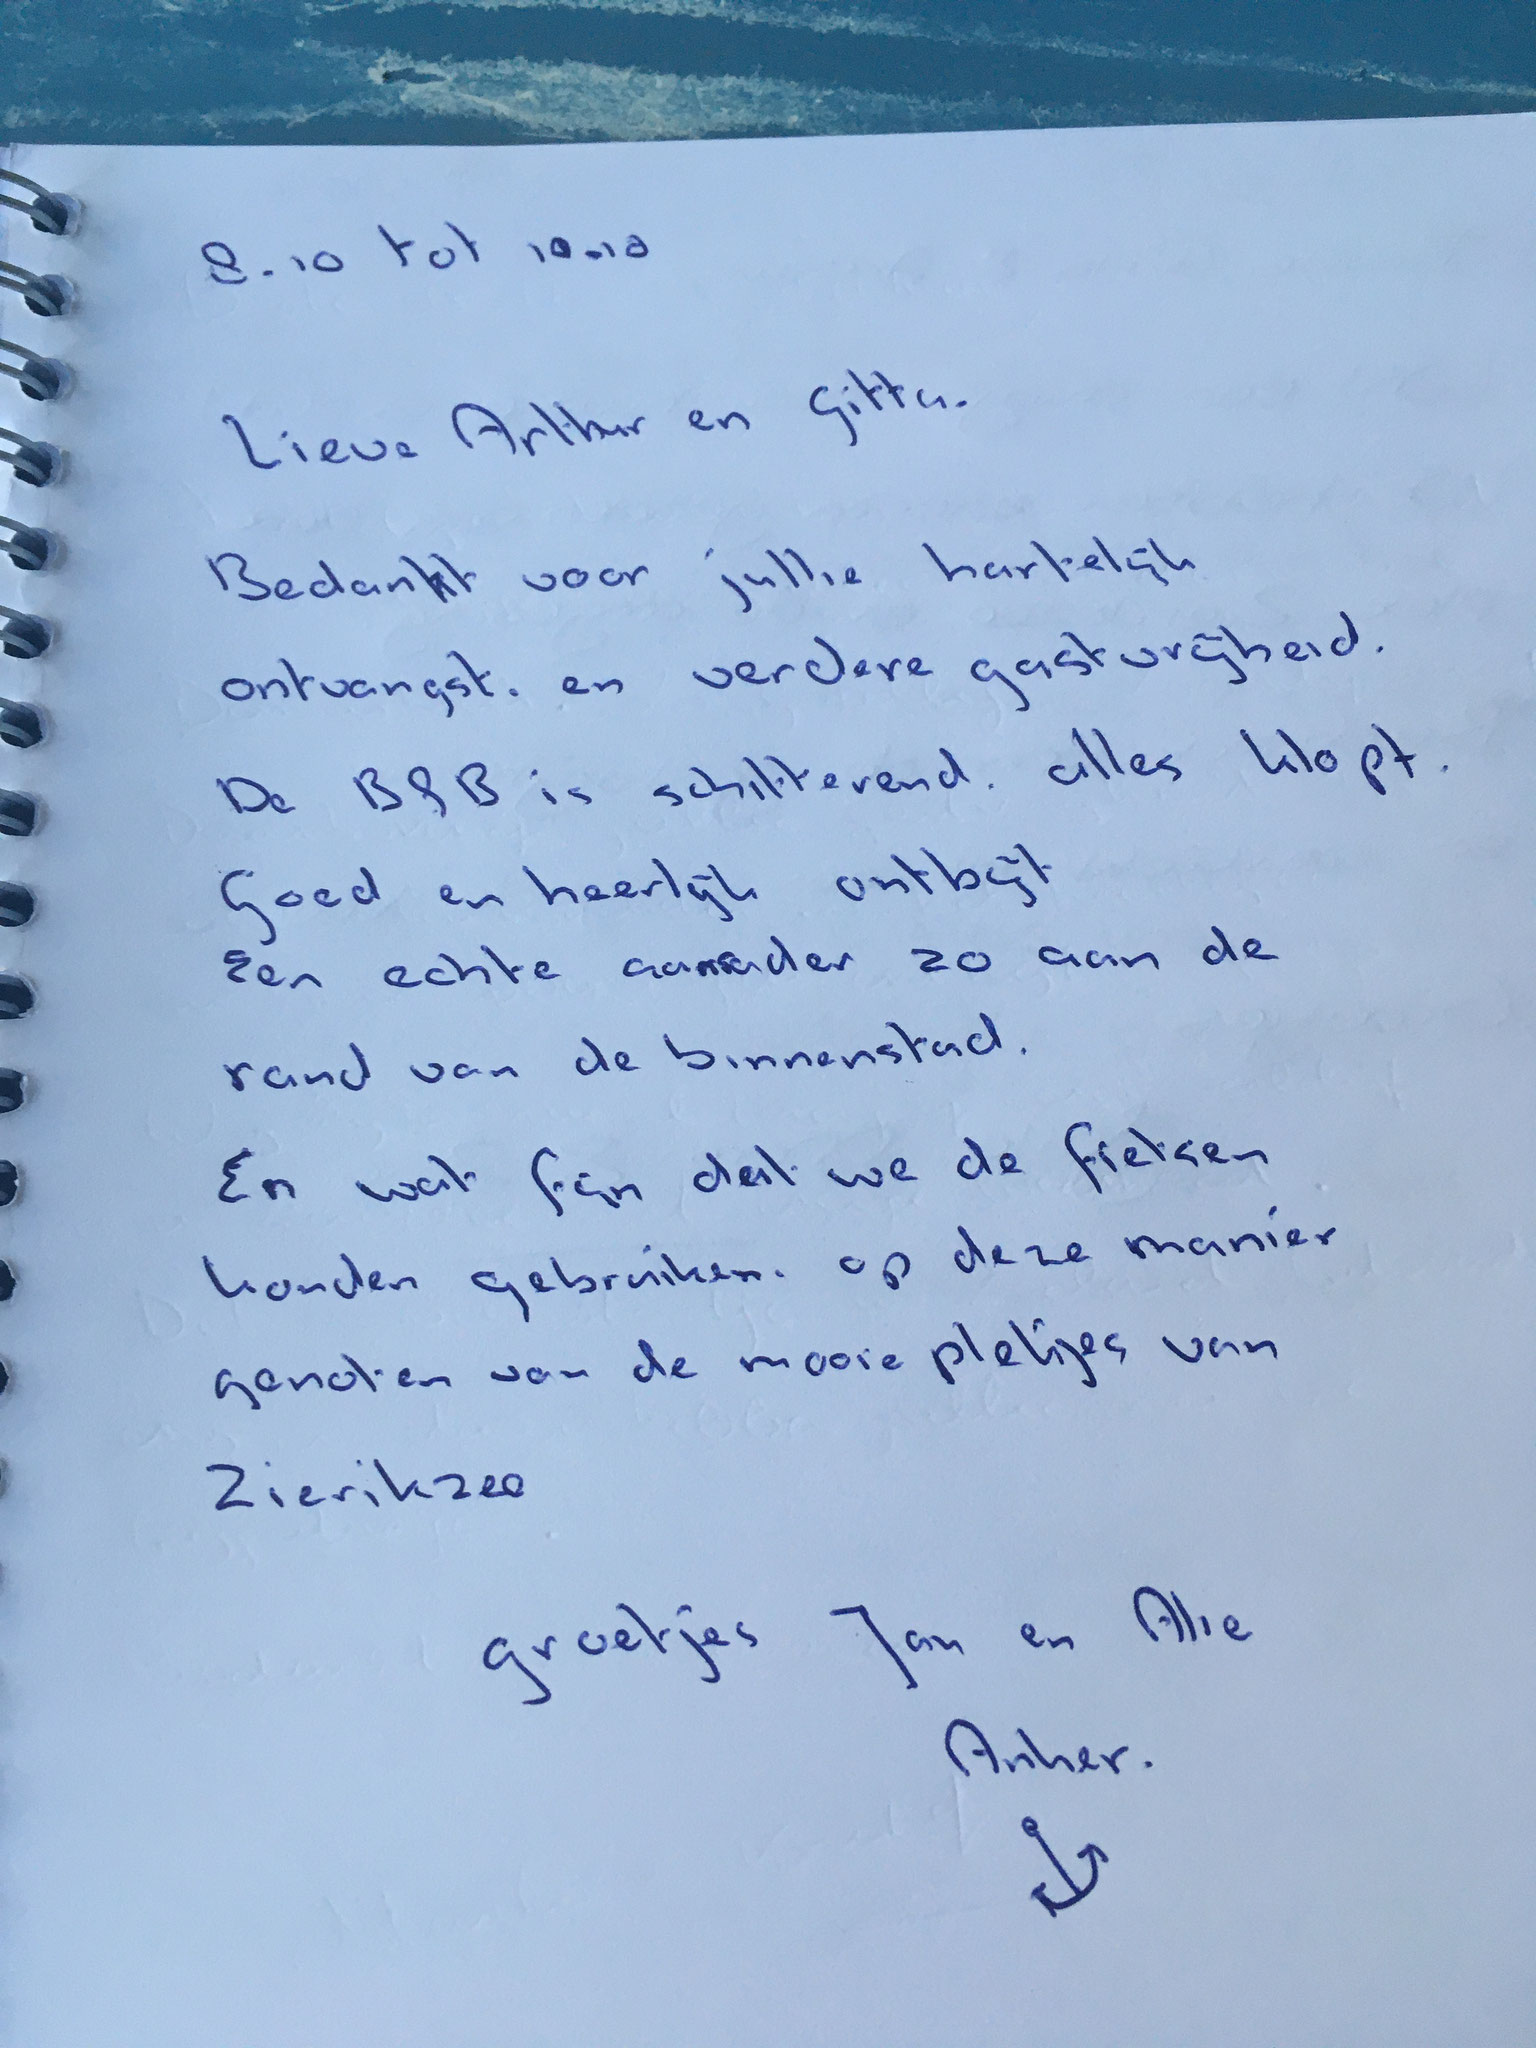 8.10 tot 10.10
Lieve Arthur en Gitta.
Bedankt voor jullie hartelijk
ontvangst. en verdere gastvrijheid.
De B&B is schitterend. alles klopt.
Goed en heerlijk ontbijt
Een echte aanrader zo aan de
rand van de binnenstad.
En wat fijn dat we de fietsen
konden gebruiken. op deze manier
genoten van de mooie plekjes van
Zierikzee
groetjes Jan en Alie
Anker.